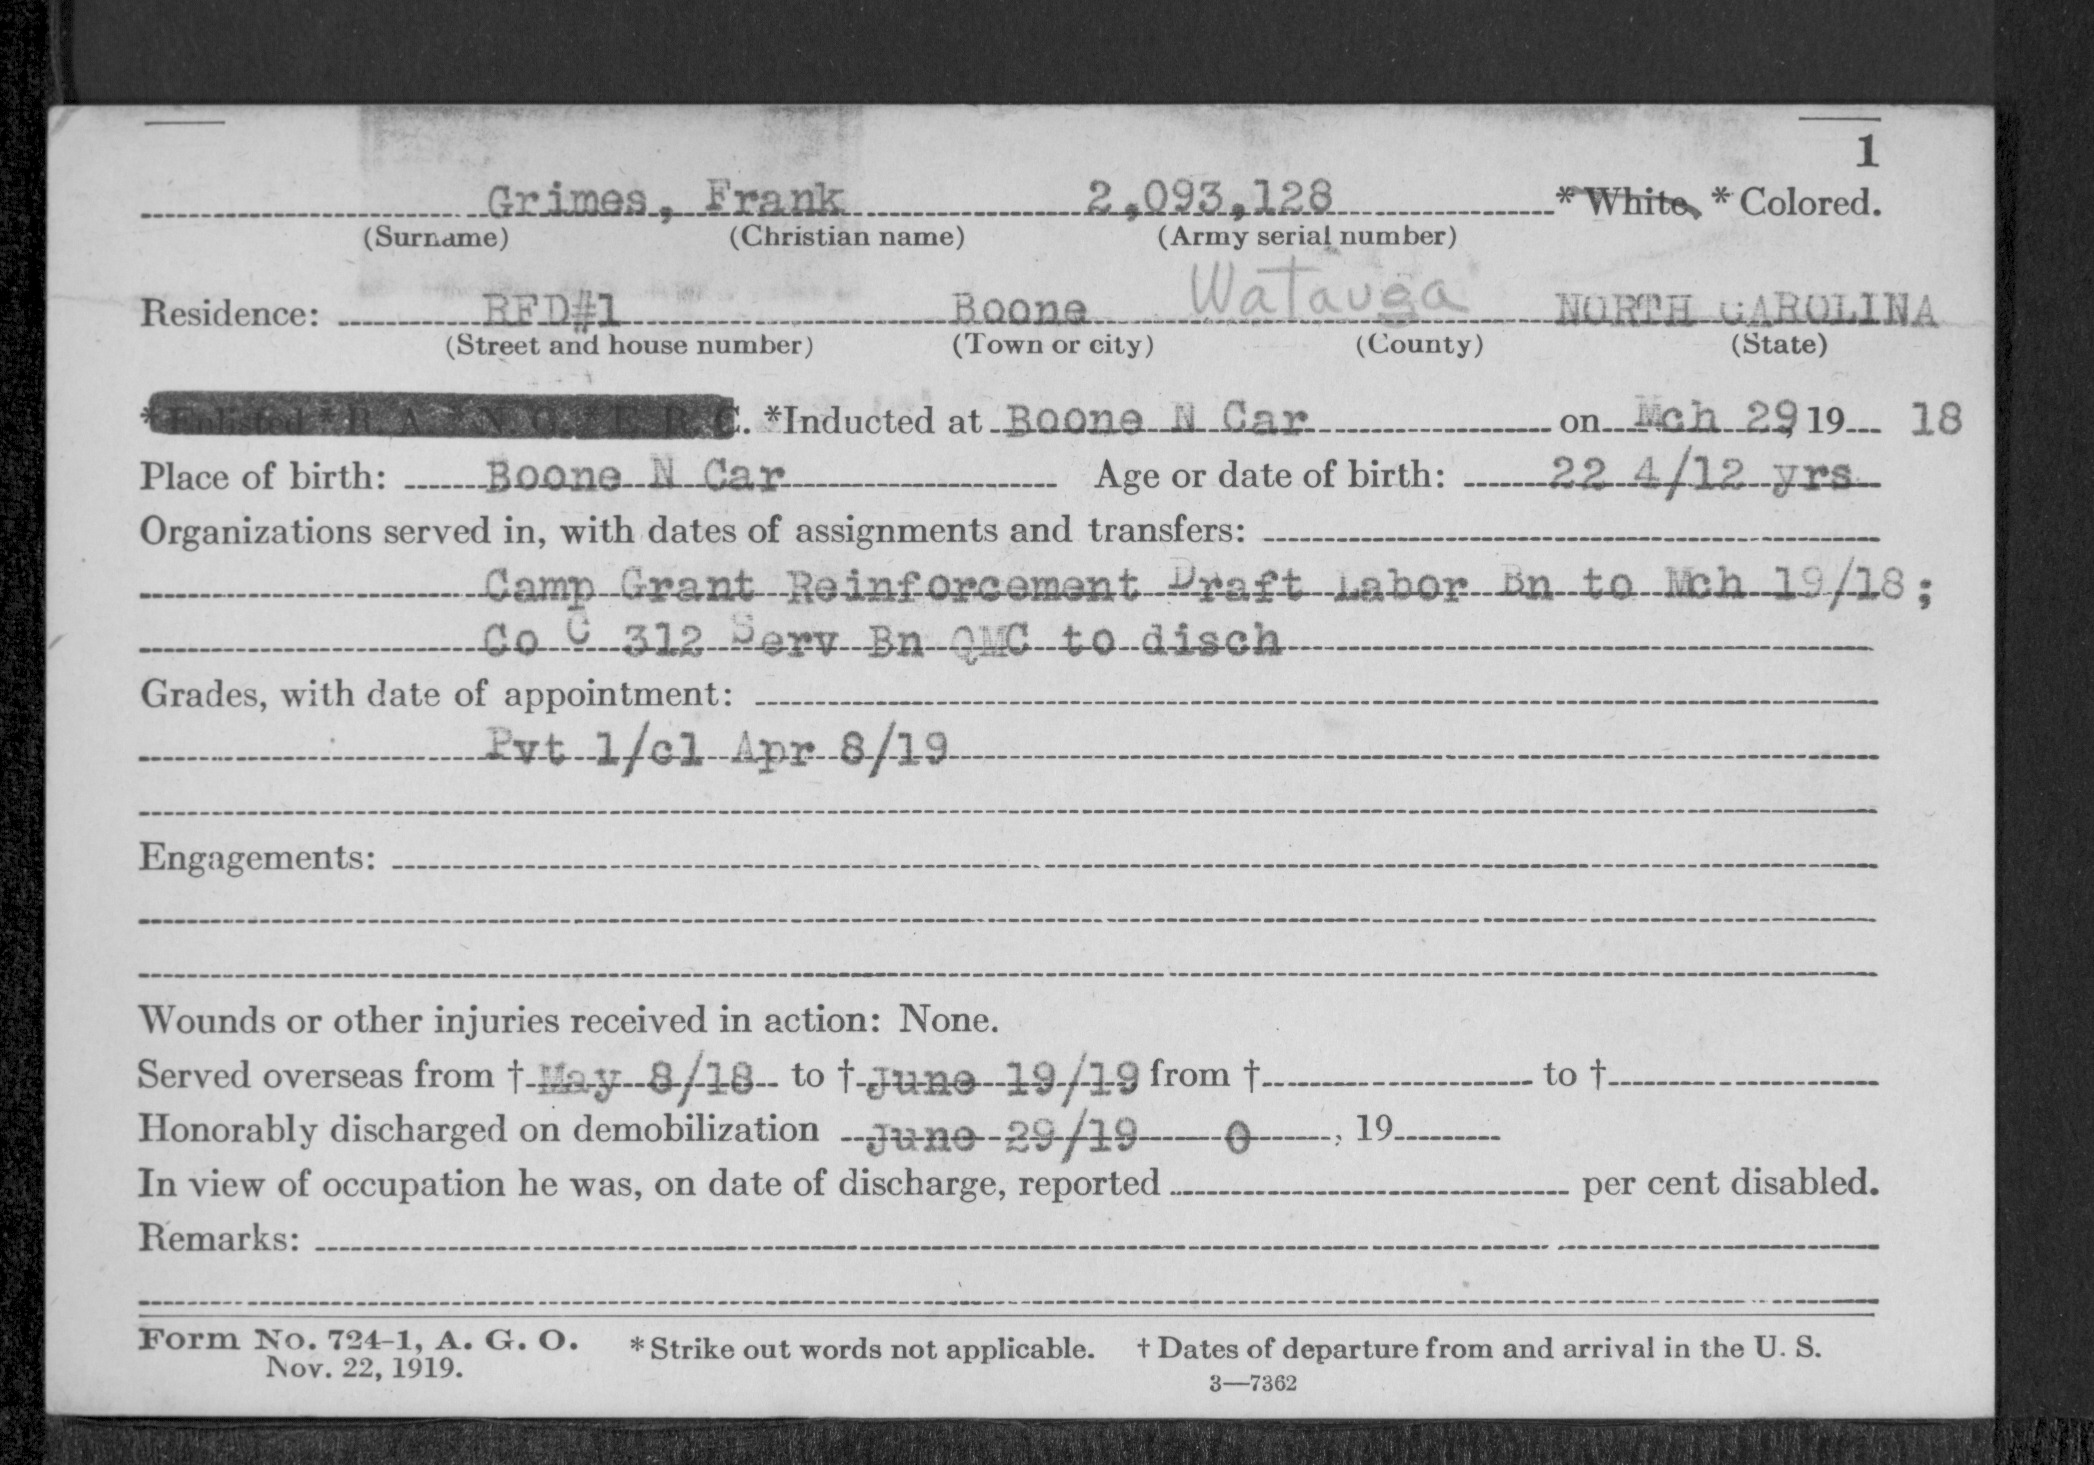 1
Grimes, Frank 2,093,128 * White, * Colored.
(Surname) (Christian name) (Army serial number)
Residence: RFD#1 Boone Watauga NORTH CAROLINA
(Street and house number) (Town or city) (County) (State)
* Enlisted * R. A. * N. G. * E. R. C. *Inducted at Boone N Car on Mch 29, 19 18
Place of birth: Boone N Car Age or date of birth: 22 4/12 yrs
Organizations served in, with dates of assignments and transfers:
Camp Grant Reinforcement Draft Labor Bn to Mch 19/18;
Co C 312 Serv Bn QMC to disch
Grades, with date of appointment:
Pvt 1/cl Apr 8/19
Engagements:
Wounds or other injuries received in action: None.
Served overseas from † May 8/18 to † June 19/19 from † to †
Honorably discharged on demobilization June 29/19 0, 19
In view of occupation he was, on date of discharge, reported per cent disabled.
Remarks:
Form No. 724-1, A. G. O. * Strike out words not applicable. † Dates of departure from and arrival in the U. S.
Nov. 22, 1919.
3—7362